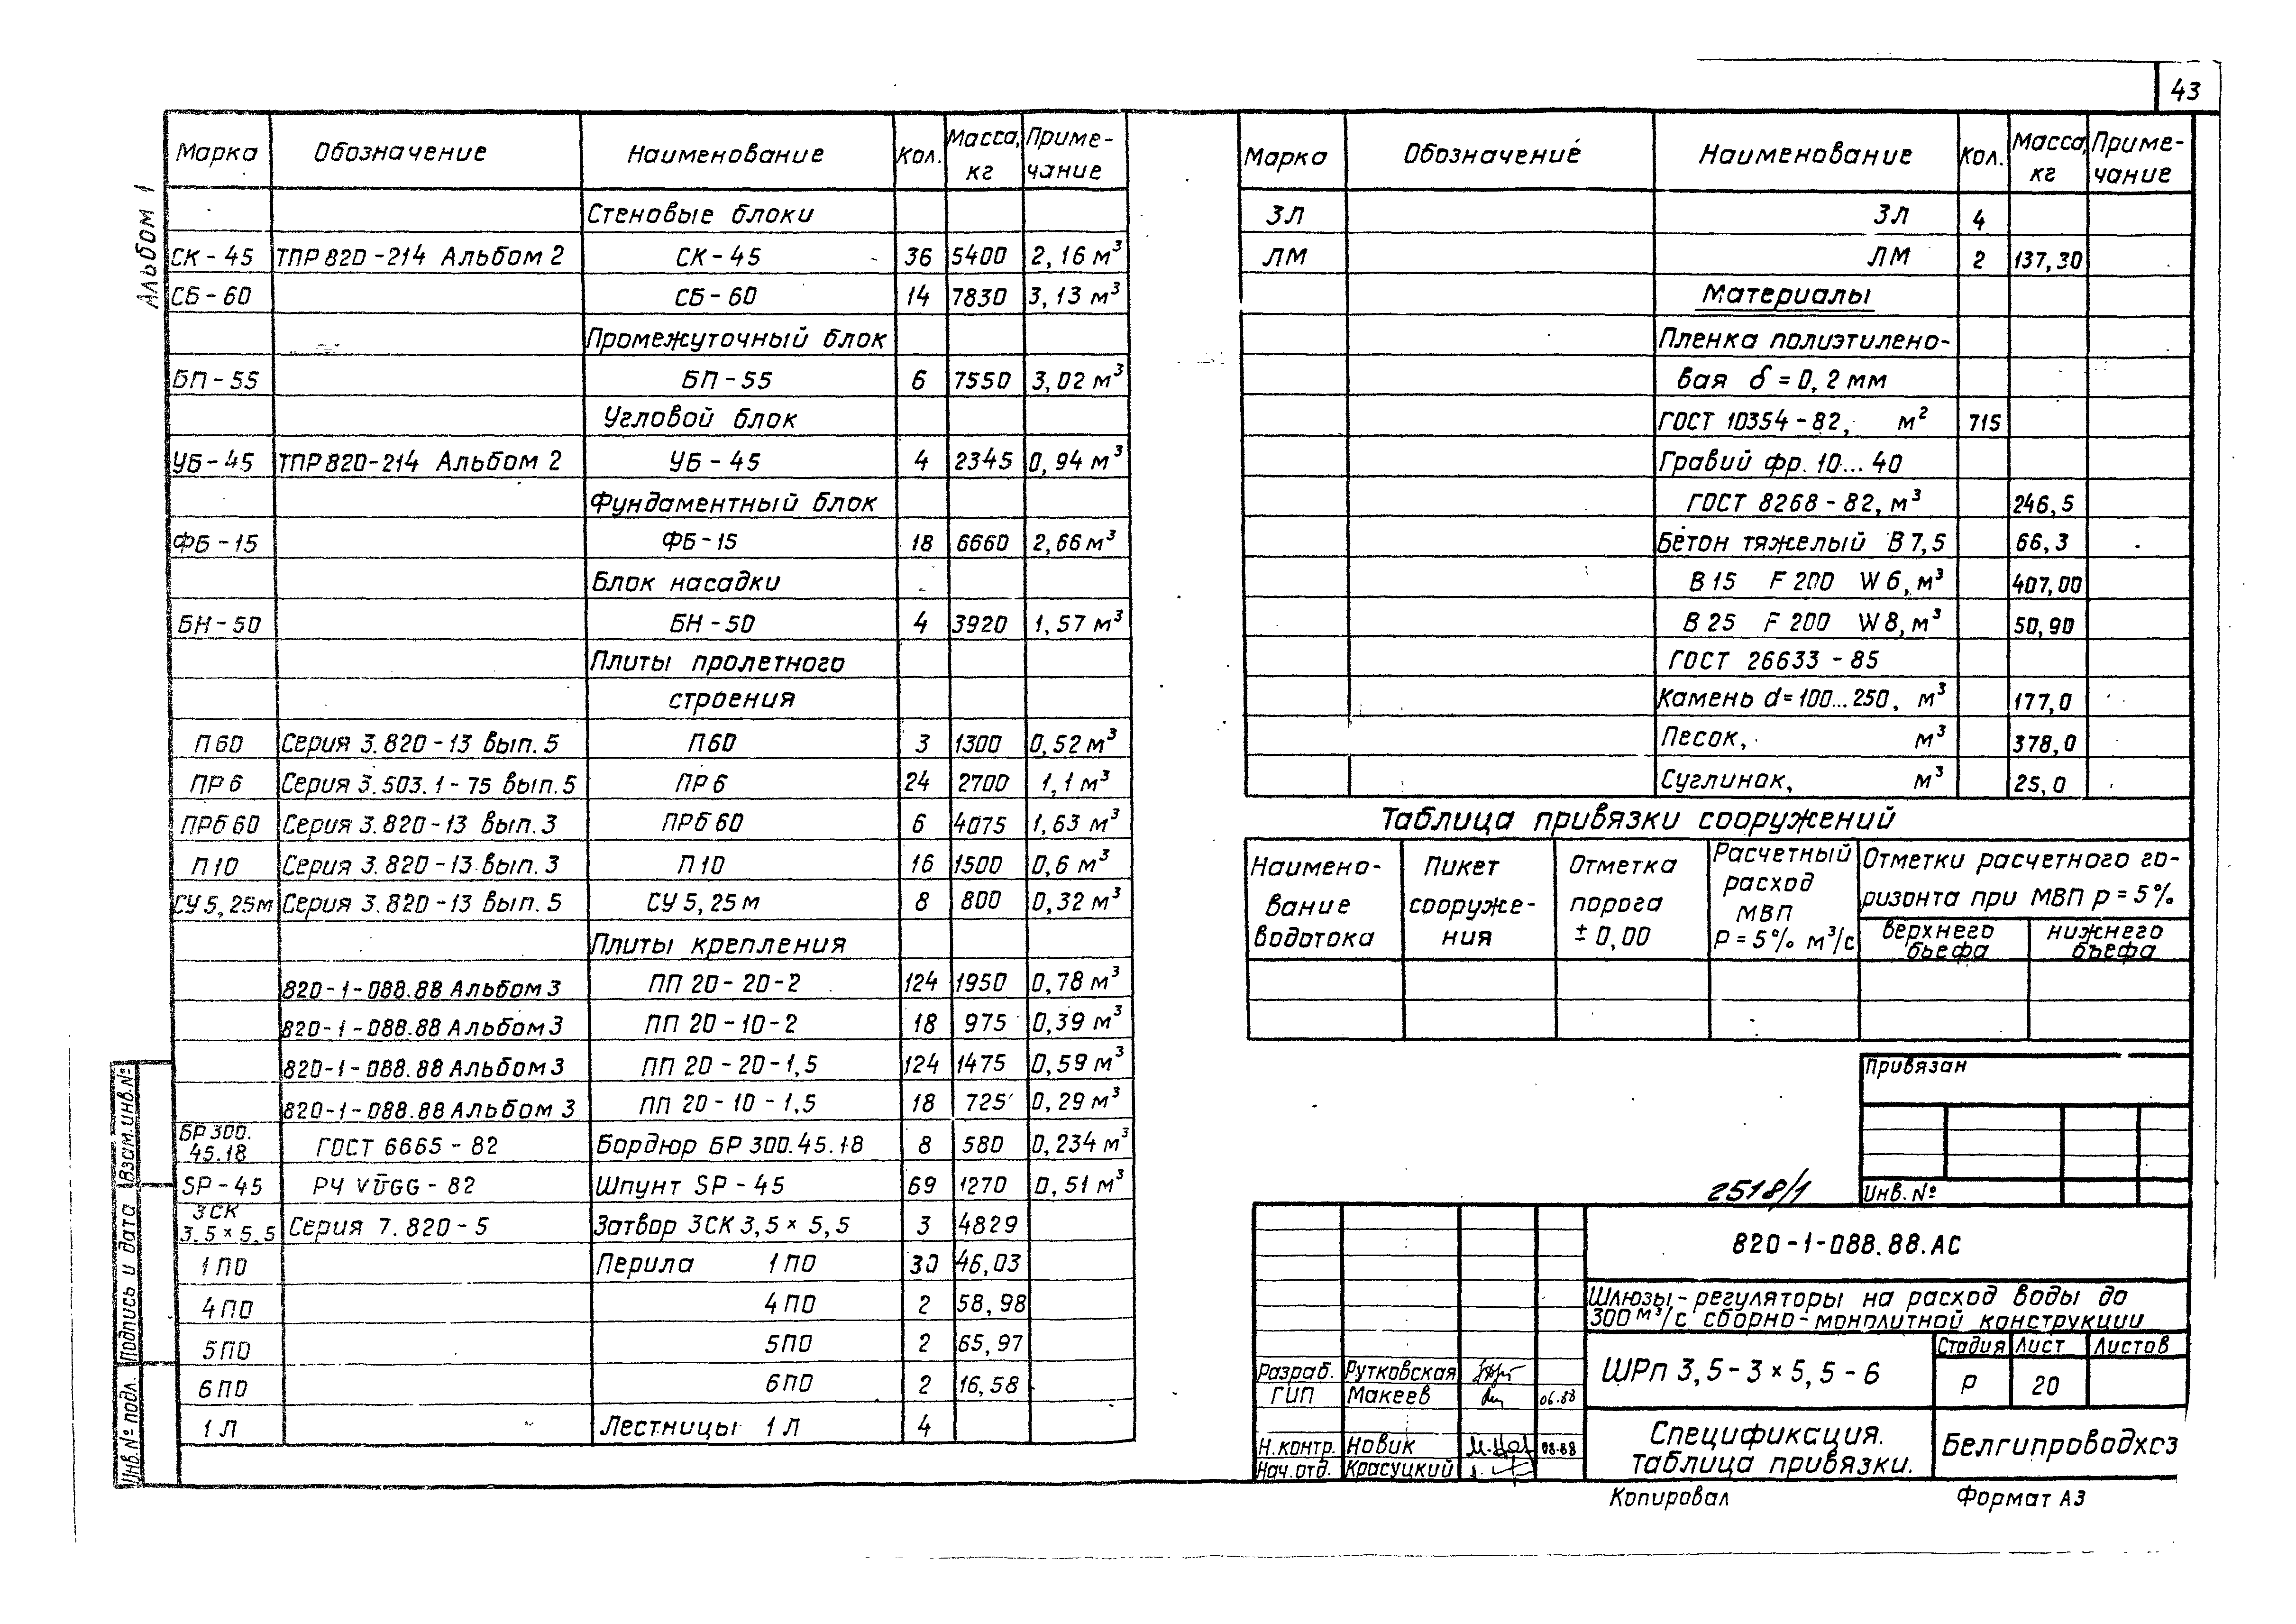 43
Альбом 1
Марка Обозначение Наименование Кол. Масса, кг Примечание
Стеновые блоки
СК-45 ТПР 820-214 Альбом 2 СК-45 36 5400 2,16 м³
СБ-60 СБ-60 14 7830 3,13 м³
Промежуточный блок
БП-55 БП-55 6 7550 3,02 м³
Угловой блок
УБ-45 ТПР 820-214 Альбом 2 УБ-45 4 2345 0,94 м³
Фундаментный блок
ФБ-15 ФБ-15 18 6660 2,66 м³
Блок насадки
БН-50 БН-50 4 3920 1,57 м³
Плиты пролетного
строения
П60 Серия 3.820-13 вып.5 П60 3 1300 0,52 м³
ПР6 Серия 3.503.1-75 вып.5 ПР6 24 2700 1,1 м³
ПРб60 Серия 3.820-13 вып.3 ПРб60 6 4075 1,63 м³
П10 Серия 3.820-13 вып.3 П10 16 1500 0,6 м³
СУ5,25м Серия 3.820-13 вып.5 СУ5,25м 8 800 0,32 м³
Плиты крепления
820-1-088.88 Альбом 3 ПП 20-20-2 124 1950 0,78 м³
820-1-088.88 Альбом 3 ПП 20-10-2 18 975 0,39 м³
820-1-088.88 Альбом 3 ПП 20-20-1,5 124 1475 0,59 м³
820-1-088.88 Альбом 3 ПП 20-10-1,5 18 725 0,29 м³
БР300.45.18 ГОСТ 6665-82 Бордюр БР 300.45.18 8 580 0,234 м³
SP-45 РЧ VŪGG-82 Шпунт SP-45 69 1270 0,51 м³
ЗСК 3,5×5,5 Серия 7.820-5 Затвор ЗСК 3,5×5,5 3 4829
1ПО Перила 1ПО 30 46,03
4ПО 4ПО 2 58,98
5ПО 5ПО 2 65,97
6ПО 6ПО 2 16,58
1Л Лестницы 1Л 4
Марка Обозначение Наименование Кол. Масса, кг Примечание
3Л 3Л 4
ЛМ ЛМ 2 137,30
Материалы
Пленка полиэтилено-
вая δ=0,2 мм
ГОСТ 10354-82, м² 715
Гравий фр. 10...40
ГОСТ 8268-82, м³ 246,5
Бетон тяжелый В7,5 66,3
В15 F200 W6, м³ 407,00
В25 F200 W8, м³ 50,90
ГОСТ 26633-85
Камень d=100...250, м³ 177,0
Песок, м³ 378,0
Суглинок, м³ 25,0
Таблица привязки сооружений
Наимено-
вание
водотока
Пикет
сооруже-
ния
Отметка
порога
± 0,00
Расчетный
расход
МВП
Р=5% м³/с
Отметки расчетного го-
ризонта при МВП р=5%
верхнего
бьефа
нижнего
бьефа
Привязан
Инв. №
2518/1
820-1-088.88.АС
Шлюзы-регуляторы на расход воды до
300 м³/с сборно-монолитной конструкции
ШРп 3,5-3×5,5-6
Стадия Лист Листов
Р 20
Разраб. Рутковская
ГИП Макеев 06.88
Н.контр. Новик 08.88
Нач.отд. Красуцкий
Спецификация.
Таблица привязки.
Белгипроводхоз
Копировал Формат А3
Взам.инв.№
Подпись и дата
Инв.№ подл.